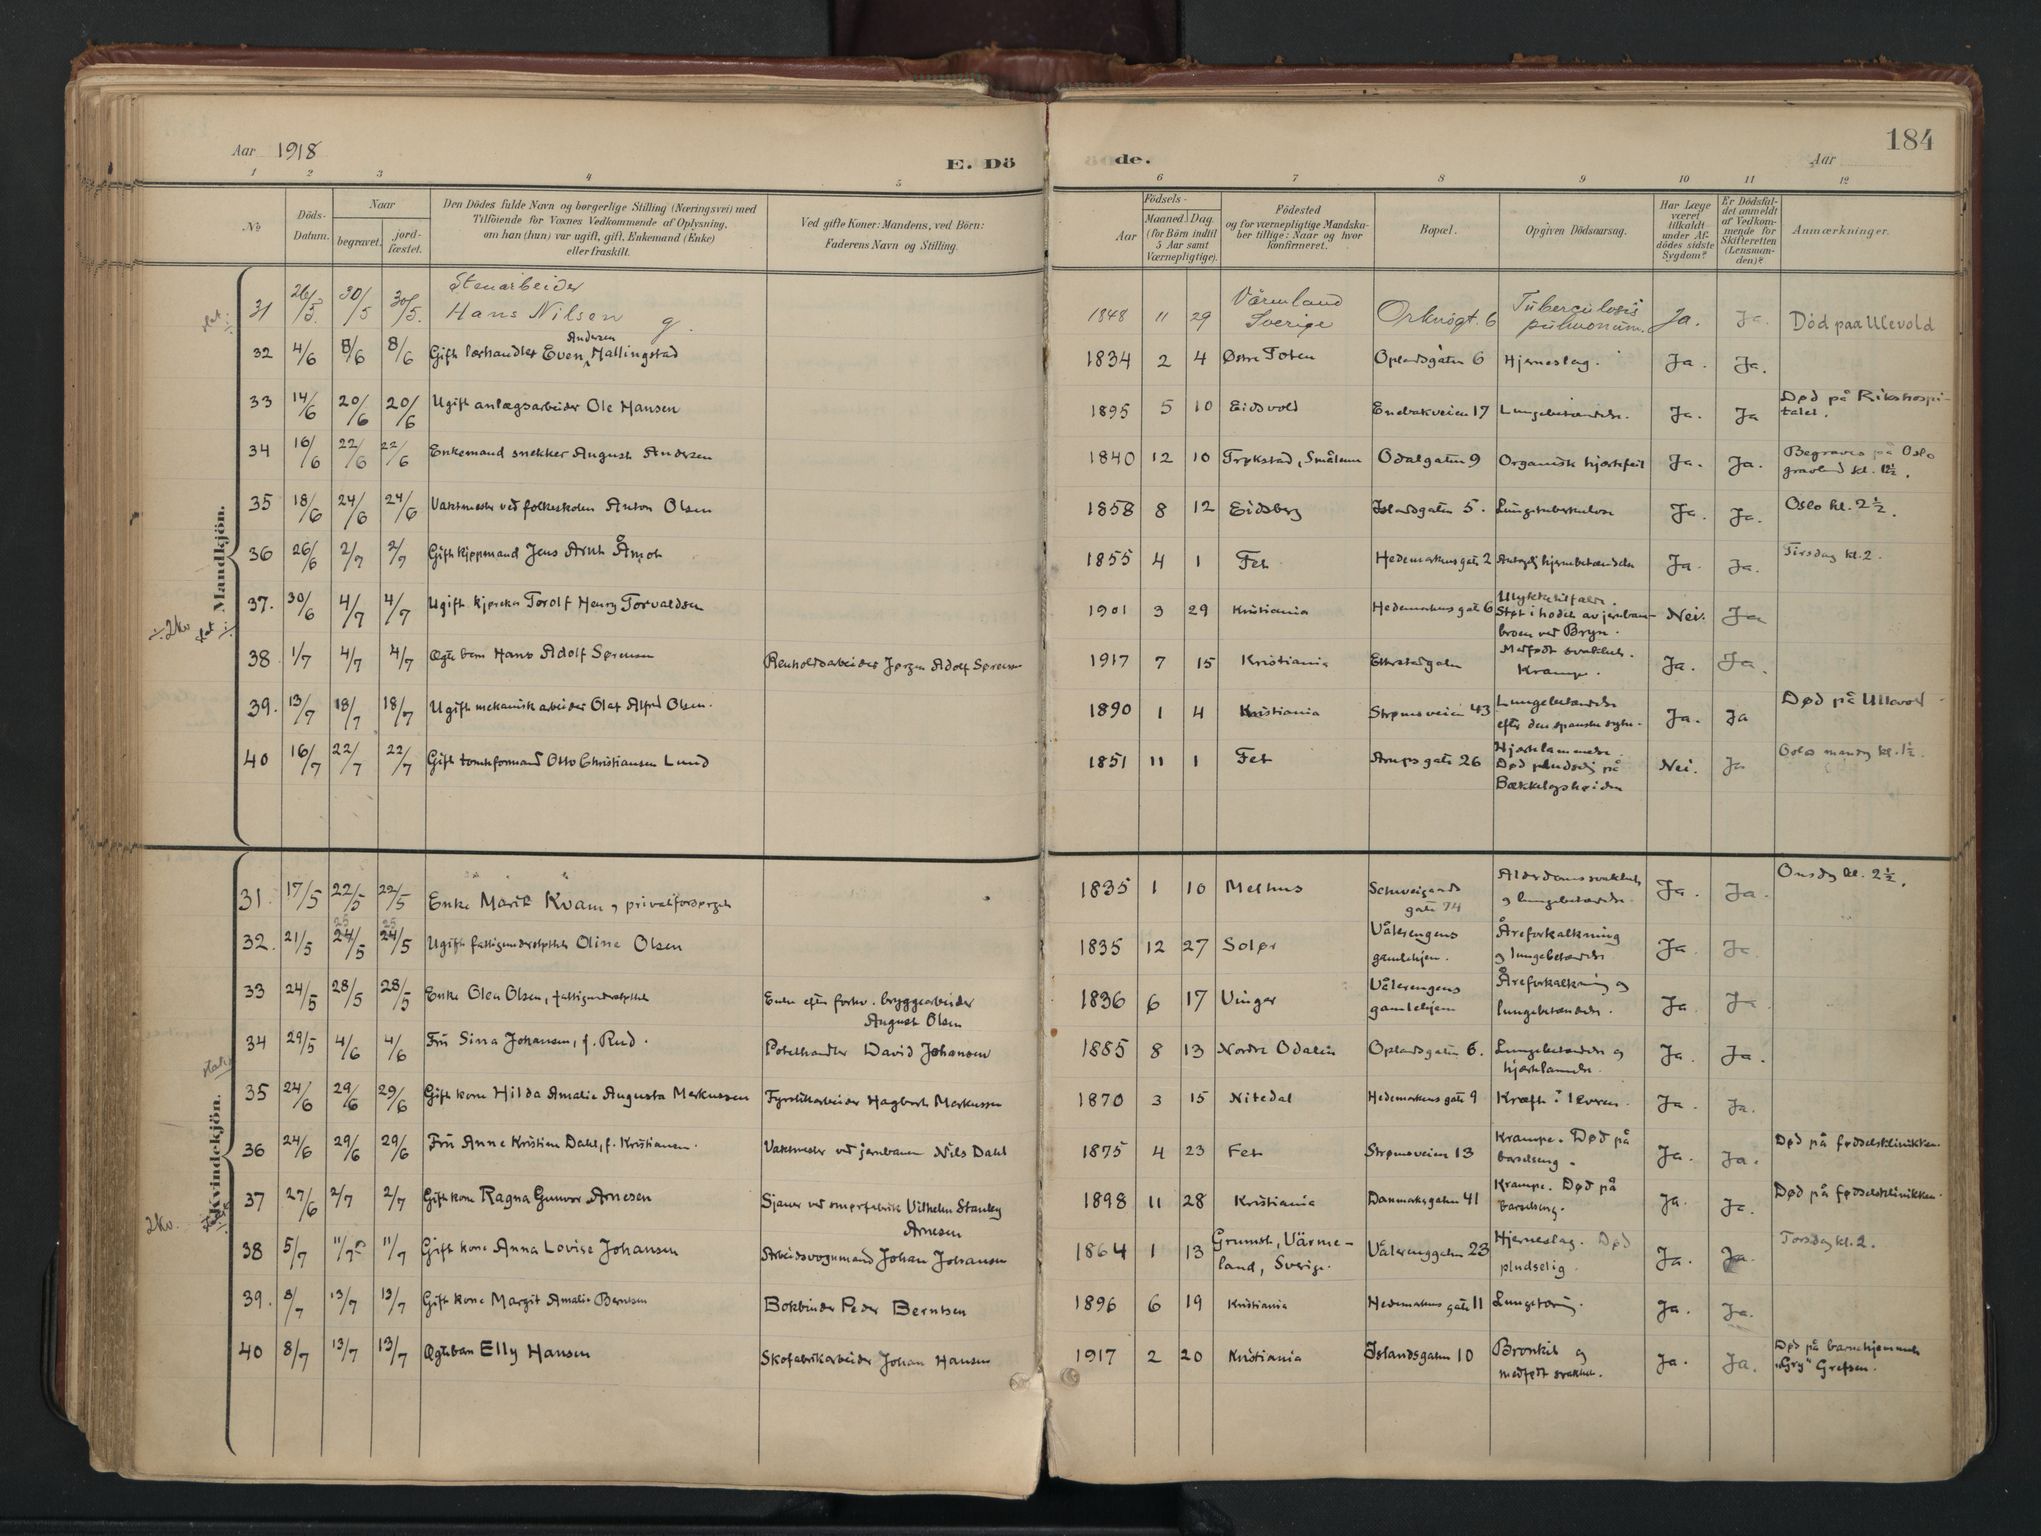 Aar 1918
E. Dö
de.
184
Aar
1 2 3 4 5 6 7 8 9 10 11 12
No
Döds-
Datum.
Naar
begravet.
jord-
fæstet.
Den Dödes fulde Navn og borgerlige Stilling (Næringsvei) med
Tilföiende for Voxnes Vedkommende af Oplysning,
om han (hun) var ugift, gift, Enkemand (Enke)
eller fraskilt.
Ved gifte Koner: Mandens, ved Börn:
Faderens Navn og Stilling.
Aar
Födsels-
Maaned. Dag.
(for Börn indtil
5 Aar samt
Værnepligtige).
Födested
og for værnepligtige Mandska-
ber tillige: Naar og hvor
konfirmeret.
Bopæl.
Opgiven Dödsaarsag.
Har Læge
været
tilkaldt
under Af-
dödes sidste
Sygdom?
Er Dödsfal-
det anmeldt
af Vedkom-
mende for
Skifteretten
(Lensman-
den)?
Anmærkninger.
Mandkjön.
31 26/5 30/5 30/5 Stenarbeider
Hans Nilsen g. 1848 11 29 Värmland
Sverige Orknögt. 6 Tuberculosis
pulmonum. Ja. Ja. Död paa Ulevold
32 4/6 8/6 8/6 Gift lærhandler Even Andersen Mallingstad 1834 2 4 Østre Toten Oplandsgaten 6 Hjerneslag. Ja. Ja.
33 14/6 20/6 20/6 Ugift anlægsarbeider Ole Hansen 1895 5 10 Eidsvold Enebakveien 17 Lungebetændelse. Ja. Ja Død på Rikshospi-
talet.
34 16/6 22/6 22/6 Enkemand snekker August Andersen 1840 12 10 Trøkstad, Smålenene Odalgaten 9 Organisk hjertefeil Ja. Ja. Begraves på Oslo
gravlund kl. 12½.
35 18/6 24/6 24/6 Vaktmester ved folkeskolen Anton Olsen 1858 8 12 Eidsberg Islandsgaten 5. Lungetuberkulose Ja. Ja. Oslo kl. 2½.
36 26/6 2/7 2/7 Gift kjøpmand Jens Arnt Åmot 1855 4 1 Fet Hedemarkens gate 2 hjernebetændelse Ja. Ja. Tirsdag kl. 2.
37. 30/6 4/7 4/7 Ugift kjører Torolf Henry Torvaldsen 1901 3 29 Kristiania Hedemarkens gate 6 Ulykkestilfælde.
Støt i hodet av jernban-
broen ved Bryn. Nei. Ja
38 1/7 4/7 4/7 Ægte barn Hans Adolf Sørensen Renholdsarbeider Jørgen Adolf Sørensen 1917 7 15 Kristiania Etterstadgaten Medfødt svakhet.
Krampe. Ja. Ja.
39. 13/7 18/7 18/7 Ugift mekanisk arbeider Olaf Alfred Olsen. 1890 1 4 Kristiania Strømsveien 43 Lungebetændelse
efter den spanske syke. Ja. Ja Død på Ullevol
40 16/7 22/7 22/7 Gift tomteformand Otto Christiansen Lund 1851 11 1 Fet Arups gate 26 Hjertelammelse.
Død pludselig på
Bækkelagshøiden Nei. Ja Oslo mandag kl. 1½.
Kvindekjön.
31. 17/5 22/5 22/5 Enke Marit Kvam, privat forsørget 1835 1 10 Melhus Schweigaards
gate 74 Alderdomssvakhet
og lungebetændelse. Ja. Ja. Onsdag kl. 2½.
32. 21/5 24/5 24/5 25 25 Ugift fattigunderstøttet Oline Olsen 1835 12 27 Solør Vålerengens
gamlehjem. Åreforkalkning
og lungebetændelse Ja. Ja
33 24/5 28/5 28/5 Enke Olea Olsen, fattigunderstøttet Enke efter forhv. bryggearbeider
August Olsen 1836 6 17 Vinger Vålerengens
gamlehjem Åreforkalkning og
lungebetændelse. Ja Ja
34 29/5 4/6 4/6 Fru Sina Johansen, f. Rud. Potethandler David Johansen 1885 8 13 Nordre Odalen Oplandsgaten 6. Lungebetændelse og
hjertelammelse. Ja. Ja.
35 24/6 29/6 29/6 Gift kone Hilda Amalie Augusta Markussen Fyrstikarbeider Hagbart Markussen 1870 3 15 Nitedal Hedemarkens gate 9 Kræft i leveren. Ja. Ja.
36 24/6 29/6 29/6 Fru Anne Kristine Dahl, f. Kristiansen. Vaktmester ved jernbanen Nils Dahl 1875 4 23 Fet Strømsveien 13 Krampe. Død på
barselseng. Ja. Ja. Død på fødselsklinikken.
37 27/6 2/7 2/7 Gift kone Ragna Gunvor Arnesen Sjauer ved smørfabrik Vilhelm Stanley
Arnesen 1898 11 28 Kristiania Danmarksgaten 41 Krampe. Død på
barselseng. Ja. Ja. Død på fødselsklinikken.
38 5/7 11/7 11/7 Gift kone Anna Lovise Johansen Arbeidsvognmand Johan Johansen 1864 1 13 Grumst, Värme-
land, Sverige. Vålerenggaten 23 Hjerneslag. Død
pludselig. Ja. Ja. Torsdag kl. 2.
39. 8/7 13/7 13/7 Gift kone Margit Amalie Berntsen Bokbinder Peder Berntsen 1896 6 19 Kristiania Hedemarkens gate 11 Lungetæring. Ja. Ja.
40 8/7 13/7 13/7 Ægtebarn Elly Hansen Skofabrikarbeider Johan Hansen 1917 2 20 Kristiania Islandsgaten 10 Bronkit og
medfødt svakhet. Ja. Ja. Død på barnehjemmet
"Gry" Grefsen.